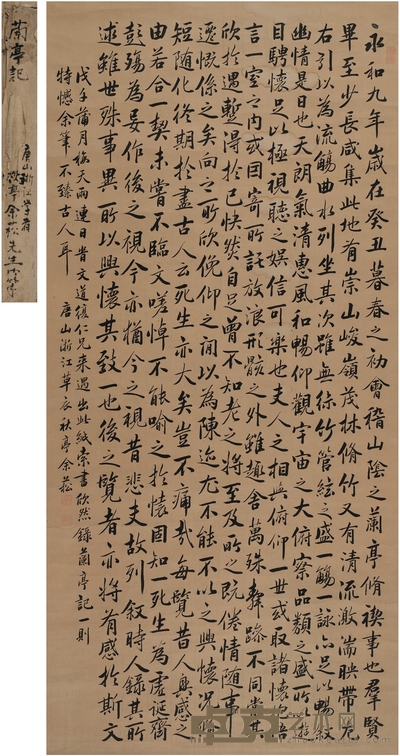 永和九年歲在癸丑暮春之初會稽山陰之蘭亭脩禊事也羣賢
畢至少長咸集此地有崇山峻嶺茂林脩竹又有清流激湍映帶左
右引以為流觴曲水列坐其次雖無絲竹管絃之盛一觴一詠亦足以暢敘
幽情是日也天朗氣清惠風和暢仰觀宇宙之大俯察品類之盛所以遊
目騁懷足以極視聽之娛信可樂也夫人之相與俯仰一世或取諸懷抱晤
言一室之內或因寄所託放浪形骸之外雖趣舍萬殊靜躁不同當其
欣於所遇暫得於己快然自足曾不知老之將至及所之既倦情隨事
遷感慨係之矣向之所欣俛仰之間以為陳迹尤不能不以之興懷況脩
短隨化終期於盡古人云死生亦大矣豈不痛哉每覽昔人興感之
由若合一契未嘗不臨文嗟悼不能喻之於懷固知一死生為虛誕齊
彭殤為妄作後之視今亦猶今之視昔悲夫故列敘時人錄其所
述雖世殊事異所以興懷其致一也後之覽者亦將有感於斯文
戊子蒲月 天雨連日 文道 仁兄來過出此紙索書欣然錄蘭亭記一則
特愧余筆不臻古人耳 唐山浙江草衣秋亭余崧
蘭亭記
唐山浙江草衣
秋亭余崧先生